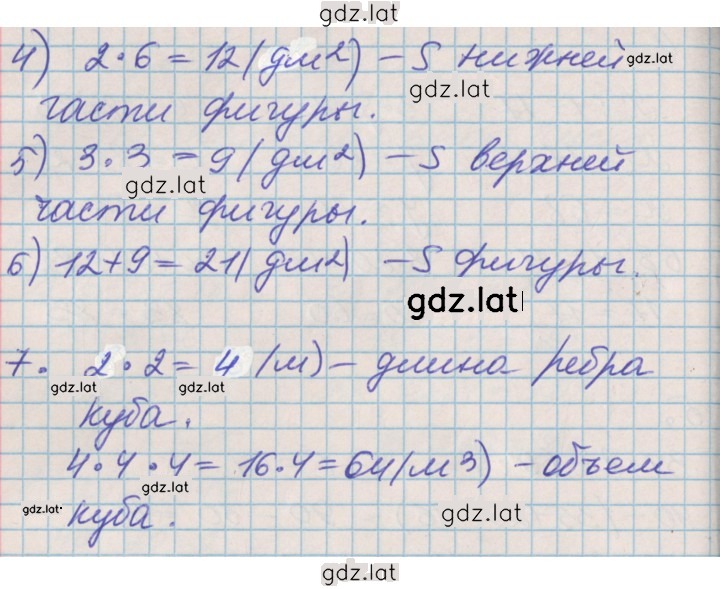 gdz.lat
4) 2·6=12(дм²) – S нижней gdz.lat
gdz.lat
части фигуры.
5) 3·3=9(дм²) – S верхней
gdz.lat
части фигуры.
6) 12+9=21(дм²) – S фигуры.
gdz.lat
7. 2·2=4(м) – длина ребра
gdz.lat gdz.lat
куба.
4·4·4=16·4=64(м3) – объем
gdz.lat
gdz.lat куба. gdz.lat
gdz.lat